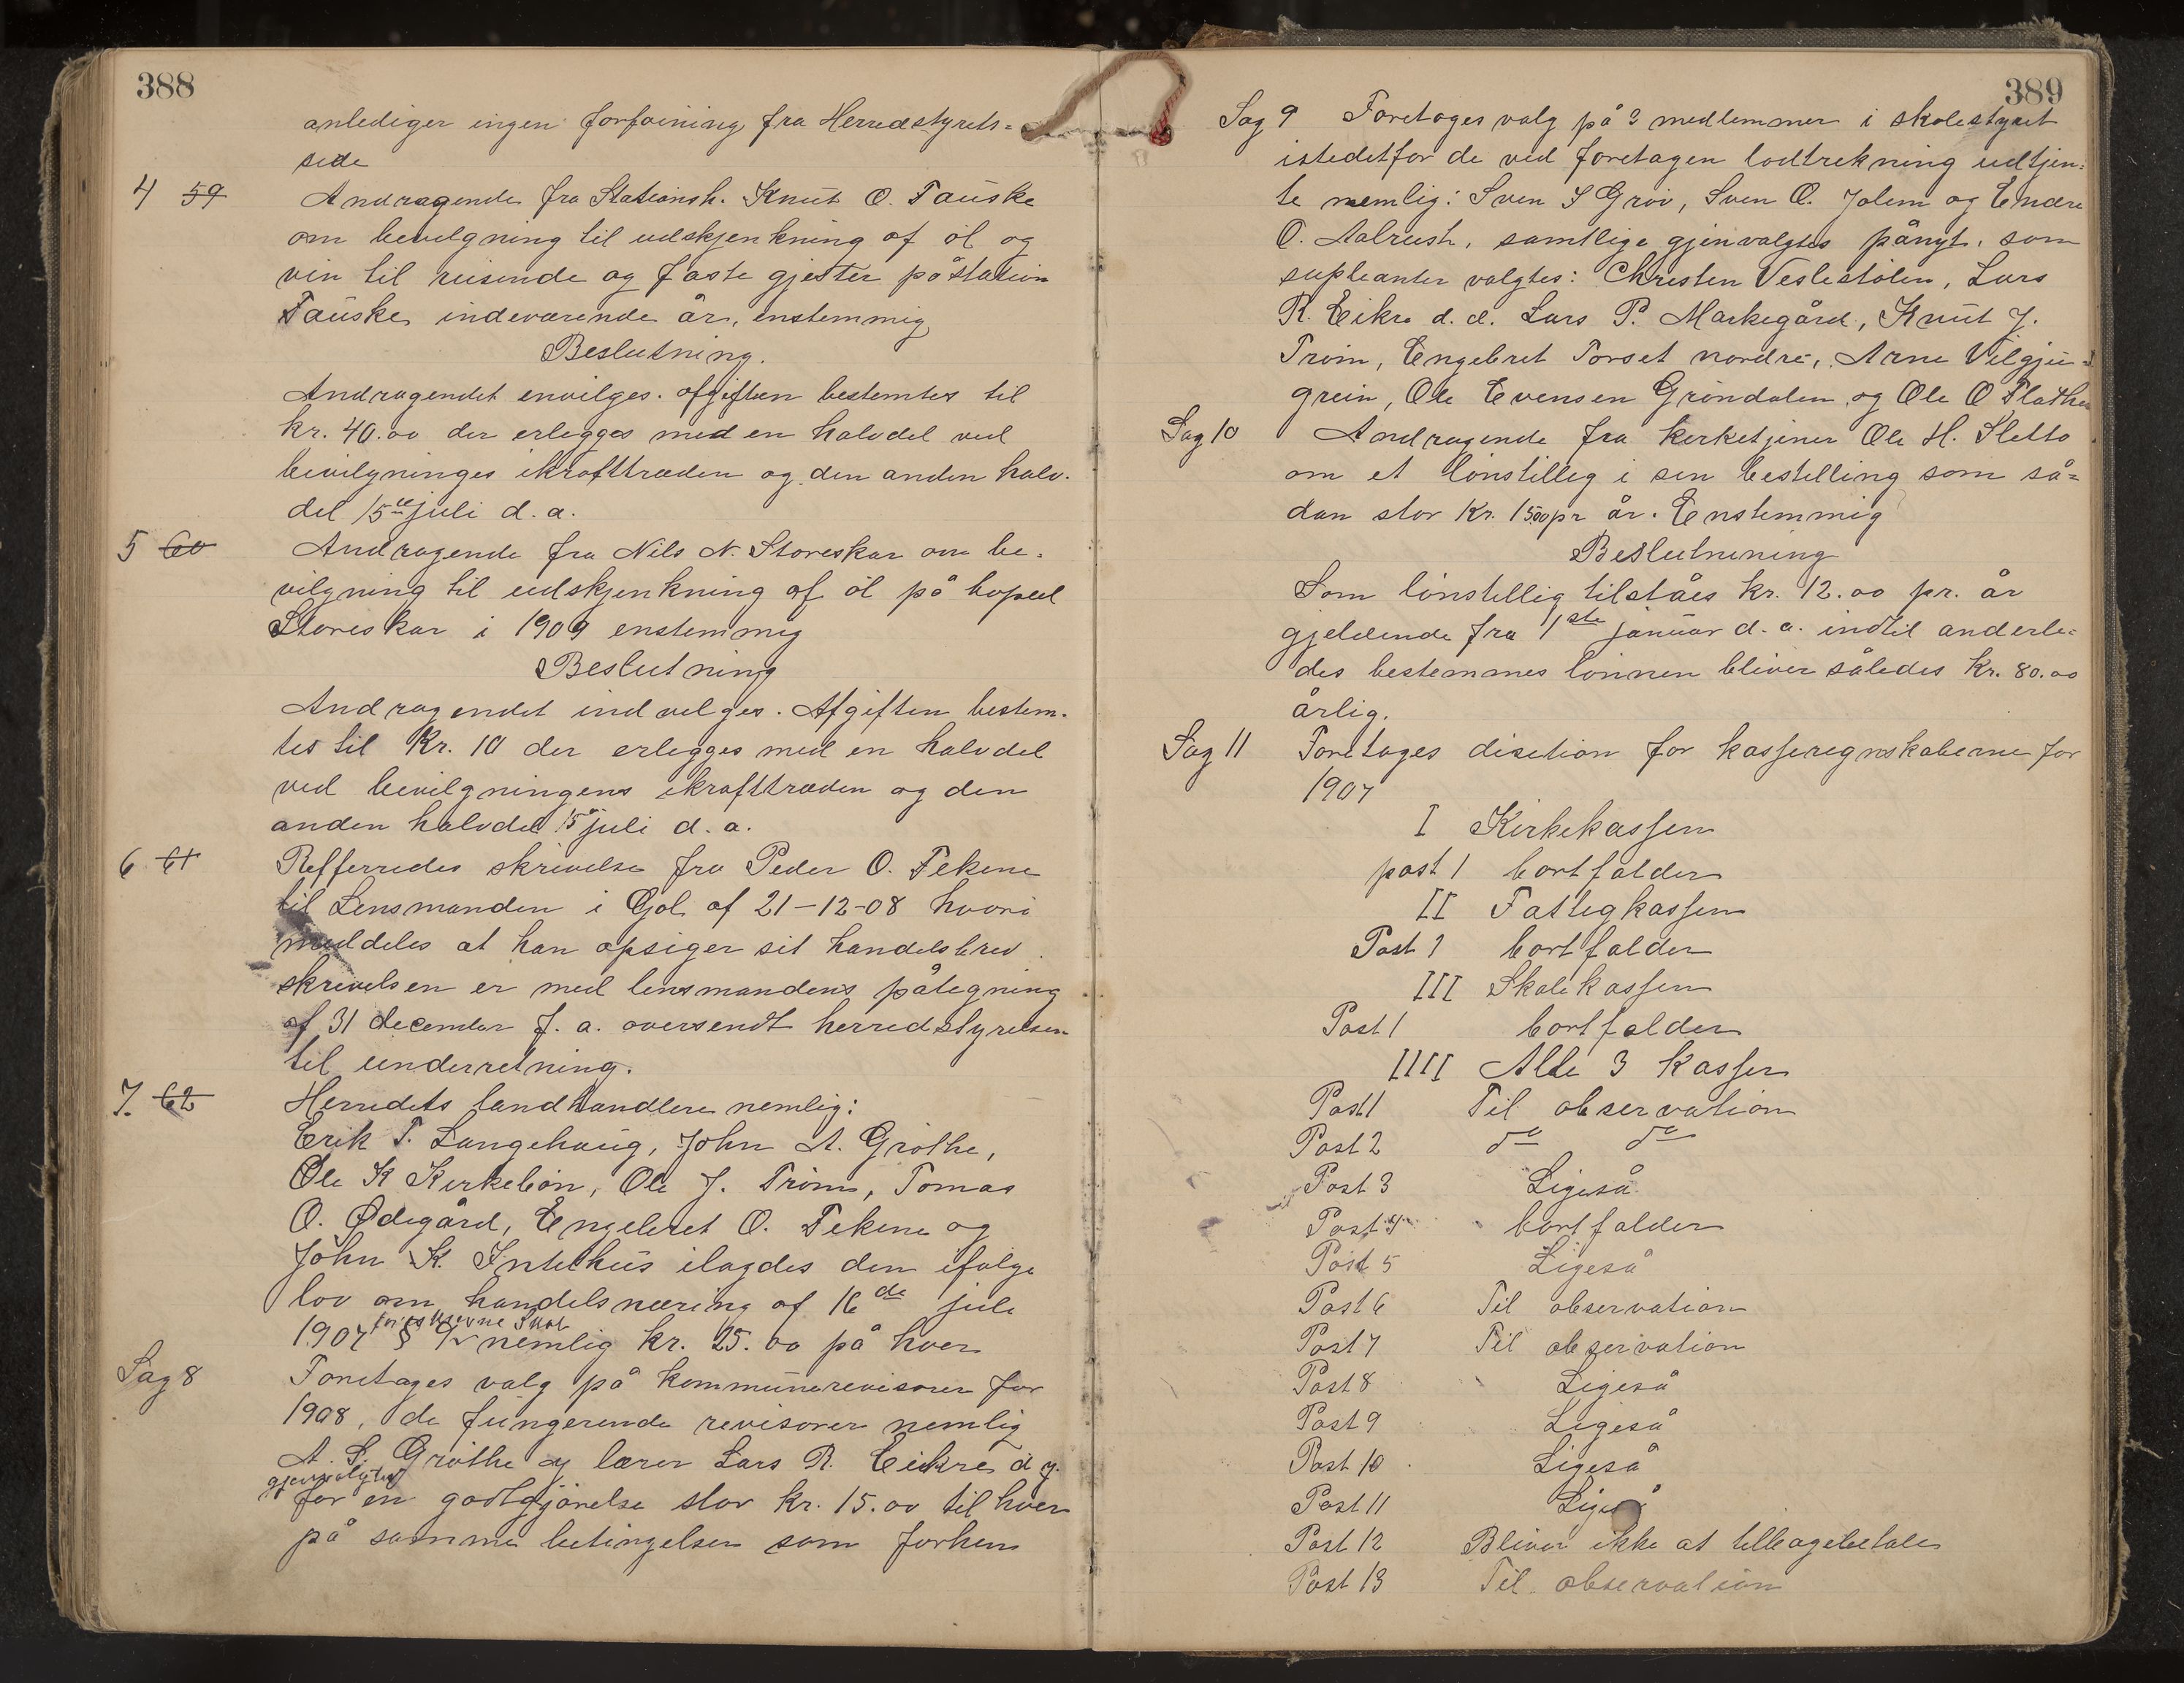 388
anlediger ingen forføining fra Herredstyrets=
side
4 59 Andragende fra Stationsh. Knut O. Fauske
om bevilgning til udskjenkning af øl og
vin til reisende og faste gjester på station
Fauske indeværende år, enstemmig
Beslutning.
Andragendet envilges. afgiften bestemtes til
kr. 40.00 der erlegges med en halvdel ved
bevilgninges ikrafttræden og den anden halv-
del 15de juli d.a.
5 60 Andragende fra Nils N. Storeskar om be-
vilgning til udskjenkning af øl på bopel
Storeskar i 1909 enstemmig
Beslutning
Andragendet indvelges. Afgiften bestem-
tes til Kr. 10 der erlegges med en halvdel
ved bevilgningens ikrafttræden og den
anden halvdel 15 juli d.a.
6 61 Refferredes skrivelse fra Peder O. Tekene
til Lensmanden i Gol af 21-12-08 hvori
meddeles at han opsiger sit handelsbrev
skrivelsen er med lensmandens påtegning
af 31 december f.a. oversendt herredstyrelsen
til underretning.
7. 62 Herredets landhandlere nemlig:
Erik T. Langehaug, John A. Grøthe,
Ole K Kirkebøn, Ole J. Trøim, Tomas
O. Ødegård, Engebret O. Tekene og
John K. Intelhus ilagdes den ifølge
lov om handelsnæring af 16de juli
foreskrevne Skat
1907 § 9 nemlig kr. 25.00 på hver
Sag 8 Foretages valg på kommunerevisorer for
1908, de fungerende revisorer nemlig
A. S. Grøthe og lærer Lars R. Eikre d.y.
gjenvalgtes
for en godtgjørelse stor kr. 15.00 til hver
på samme betingelser som forhen
389
Sag 9 Foretages valg på 3 medlemmer i skolestyret
istedetfor de ved foretagen lodtrekning udtjen=
te nemlig: Sven S Grøv, Sven O. Jolem og Endre
O. Aalrust, samtlige gjenvalgtes pånyt, som
supleanter valgtes: Christen Veslestølen, Lars
R. Eikre d. d. Lars P. Markegård, Knut J.
Trøim, Engebret Torset nordre, Arne Vilgju=
grein, Ole Evensen Grøndalen og Ole O Flathe
Sag 10 Andragende fra kirketjener Ole H. Sletto
om et lønstilleg i sen bestilling som så=
dan stor Kr. 1500 pr år. Enstemmig
Beslutnining
Som lønstillig tilståes kr. 12.00 pr. år
gjeldende fra 1ste januar d.a. indtil anderle=
des bestemmes lønnen bliver således Kr. 80.00
årlig.
Sag 11 Foretages disetion for kasseregnskaberne for
1907
I Kirkekassen
post 1 bortfalder
II Fattigkassen
Post 1 bortfalder
III Skolekassen
Post 1 bortfalder
IIII Alle 3 kasser
Post 1 Til observation
Post 2 do do
Post 3 Ligeså
Post 4 bortfalder
Post 5 Ligeså
Post 6 Til observation
Post 7 Til observation
Post 8 Ligeså
Post 9 Ligeså
Post 10 Ligeså
Post 11 Ligeså
Post 12 Bliver ikke at tilbagebetale
Post 13 Til observation